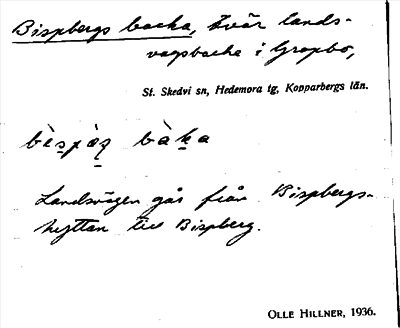 Bispbergs backa, svår lands-
vägsbacke i Gropbo,
St. Skedvi sn, Hedemora tg, Kopparbergs län.
bìspàʂ bàka
Landsvägen går från Bispbergs-
hyttan till Bispberg.
OLLE HILLNER, 1936.